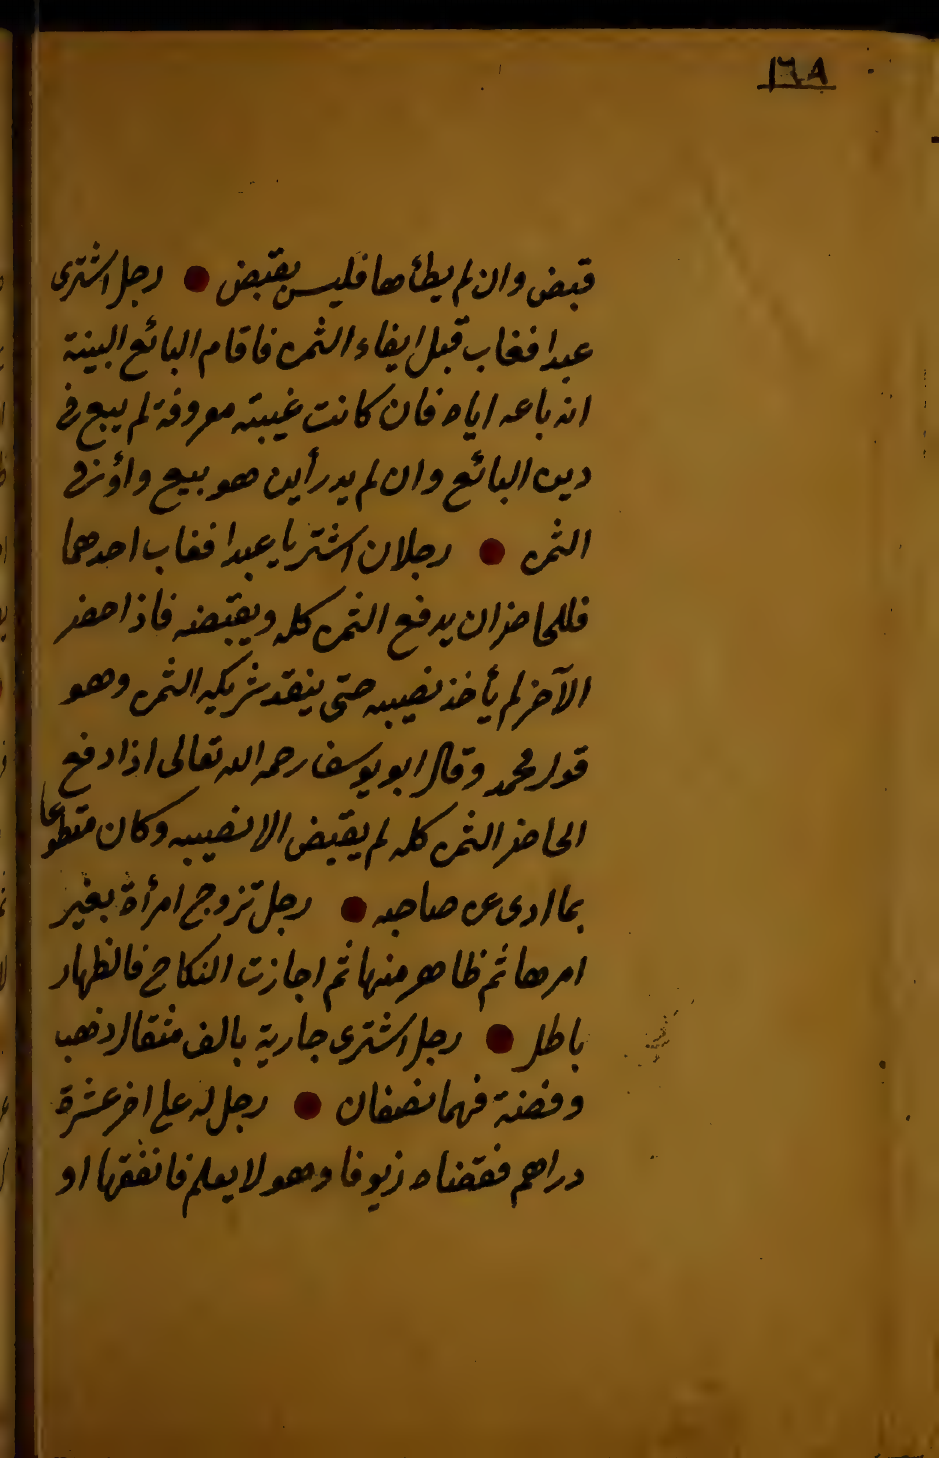 ١٦٨
قبض وان لم يطأها فليس بقبض ● رجل اشترى
عبدا فغاب قبل ايفاء الثمن فاقام البائع البينة
انه باعه اياه فان كانت غيبته معروفة لم يبع في
دين البائع وان لم يدر أين هو بيع واؤفى
الثمن ● رجلان اشتريا عبدا فغاب احدهما
فللحاضر ان يدفع الثمن كله ويقبضه فاذا حضر
الآخر لم يأخذ نصيبه حتى ينقد شريكه الثمن وهو
قول محمد وقال ابو يوسف رحمه الله تعالى اذا دفع
الحاضر الثمن كله لم يقبض الا نصيبه وكان متطوعا
بما ادى عن صاحبه ● رجل تزوج امرأة بغير
امرها ثم ظاهر منها ثم اجازت النكاح فالظهار
باطل ● رجل اشترى جارية بالف مثقال ذهب
وفضة فهما نصفان ● رجل له على اخر عشرة
دراهم فقضاه زيوفا وهو لا يعلم فانفقها او